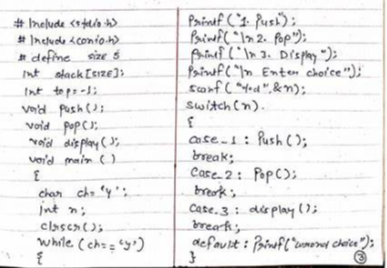 # Include <stdio.h>
# Include <conio.h>
# define size 5
int stack[SIZE];
int top=-1;
void push();
void pop();
void display();
void main ()
{
char ch='y';
int n;
clrscr();
while (ch=='y')
{
Printf("1. Push");
Printf("\n2. Pop");
Printf("\n3. Display");
Printf("\n Enter choice");
scanf("%d",&n);
switch(n).
{
case_1 : Push();
break;
Case_2 : Pop();
break;
Case_3 : display();
break;
default : Printf(" choice");
}
3